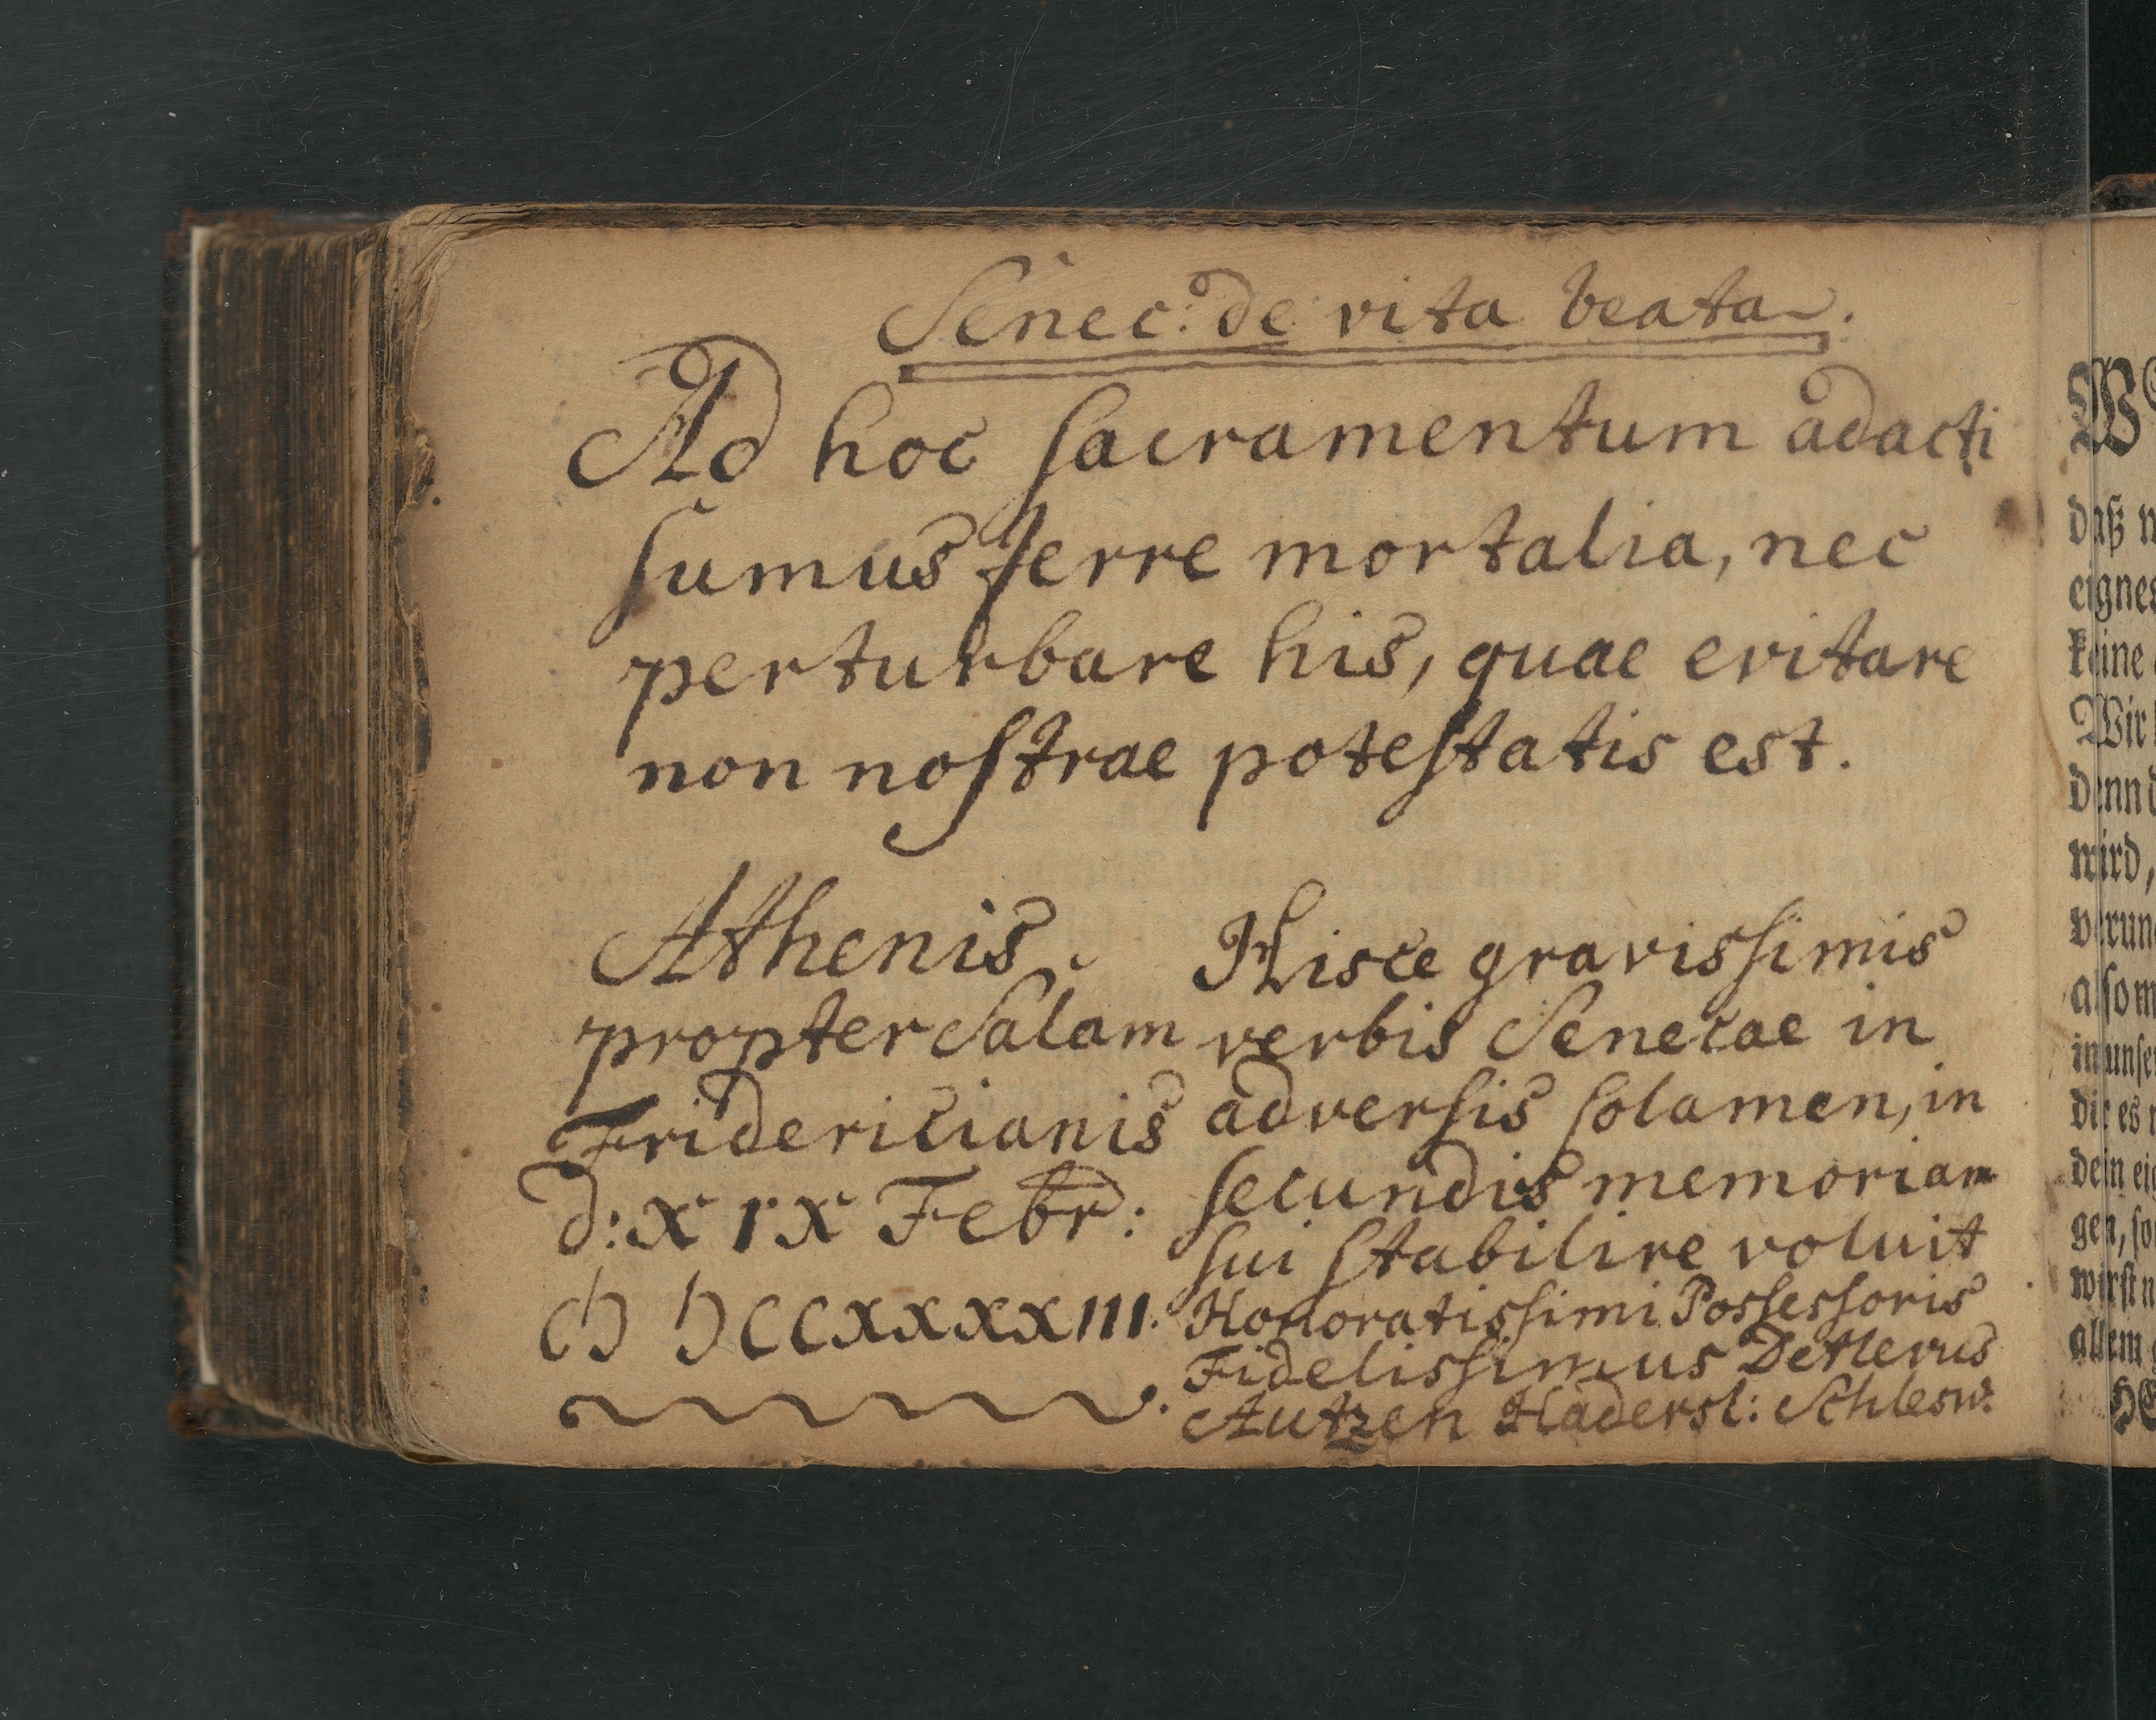 Senec: de vita beata.
Ad hoc sacramentum adacti
sumus ferre mortalia, nec
perturbare his, quae evitare
non nostrae potestatis est.
Athenis
propter Salam
Fridericianis
d: XIX Febr:
CIƆ IƆCCXXXXIII.
Hisce gravissimis
verbis Senecae in
adversis solamen, in
secundis memoriam
sui stabilire voluit
Honoratissimi Possessoris
Fidelissimus Detlevus
Autzen Hadersl: Schlesw:
W
daß
eignes
keine
Wir
denn
wird,
also
in unser
dir es
dein
gen,
wirst
allem